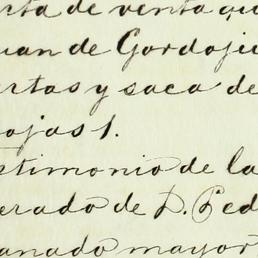 rta de venta qu
uan de Gordoju
ertas y saca de
ojas 1.
stimonio de la
erado de D. Ped
anado mayor